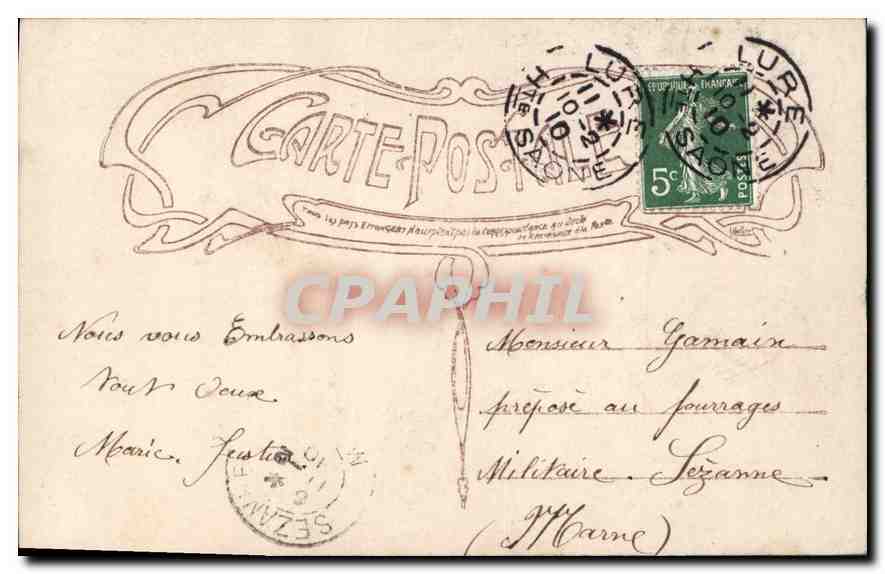 CARTE POSTALE
Tous les pays Etrangers n'acceptent pas la correspondance au dos
LURE
11 -2
10
10
Hte SAONE
LURE
10
Hte SAONE
REPUBLIQUE FRANÇAISE
5c
POSTES
CPAPHIL
Nous vous Embrassons
Tout Deux
Marie. Justin
SEZANNE
Monsieur Gamain
préposé au fourrages
Militaire. Sézanne
(Marne)